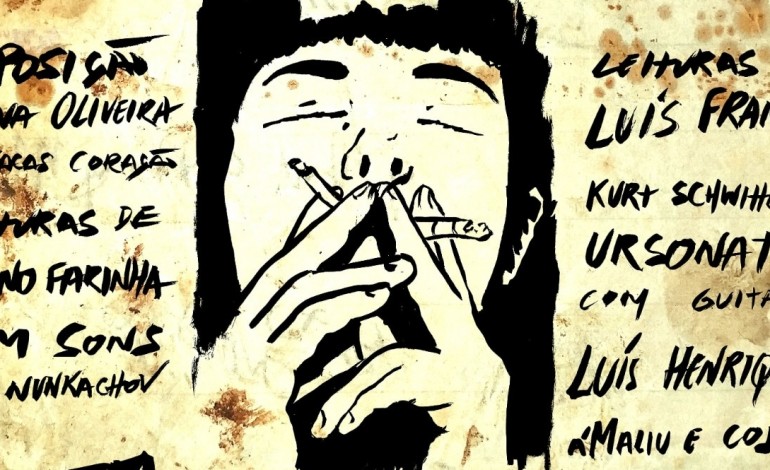 POSIÇÃO
VA OLIVEIRA
ACAS CORAÇÃO
TURAS DE
NO FARINHA
M SONS
NUNKACHOV
LEITURAS
LUÍS FRAN
KURT SCHWITTE
URSONAT
COM GUITA
LUÍS HENRIQ
A'MALIU E COS